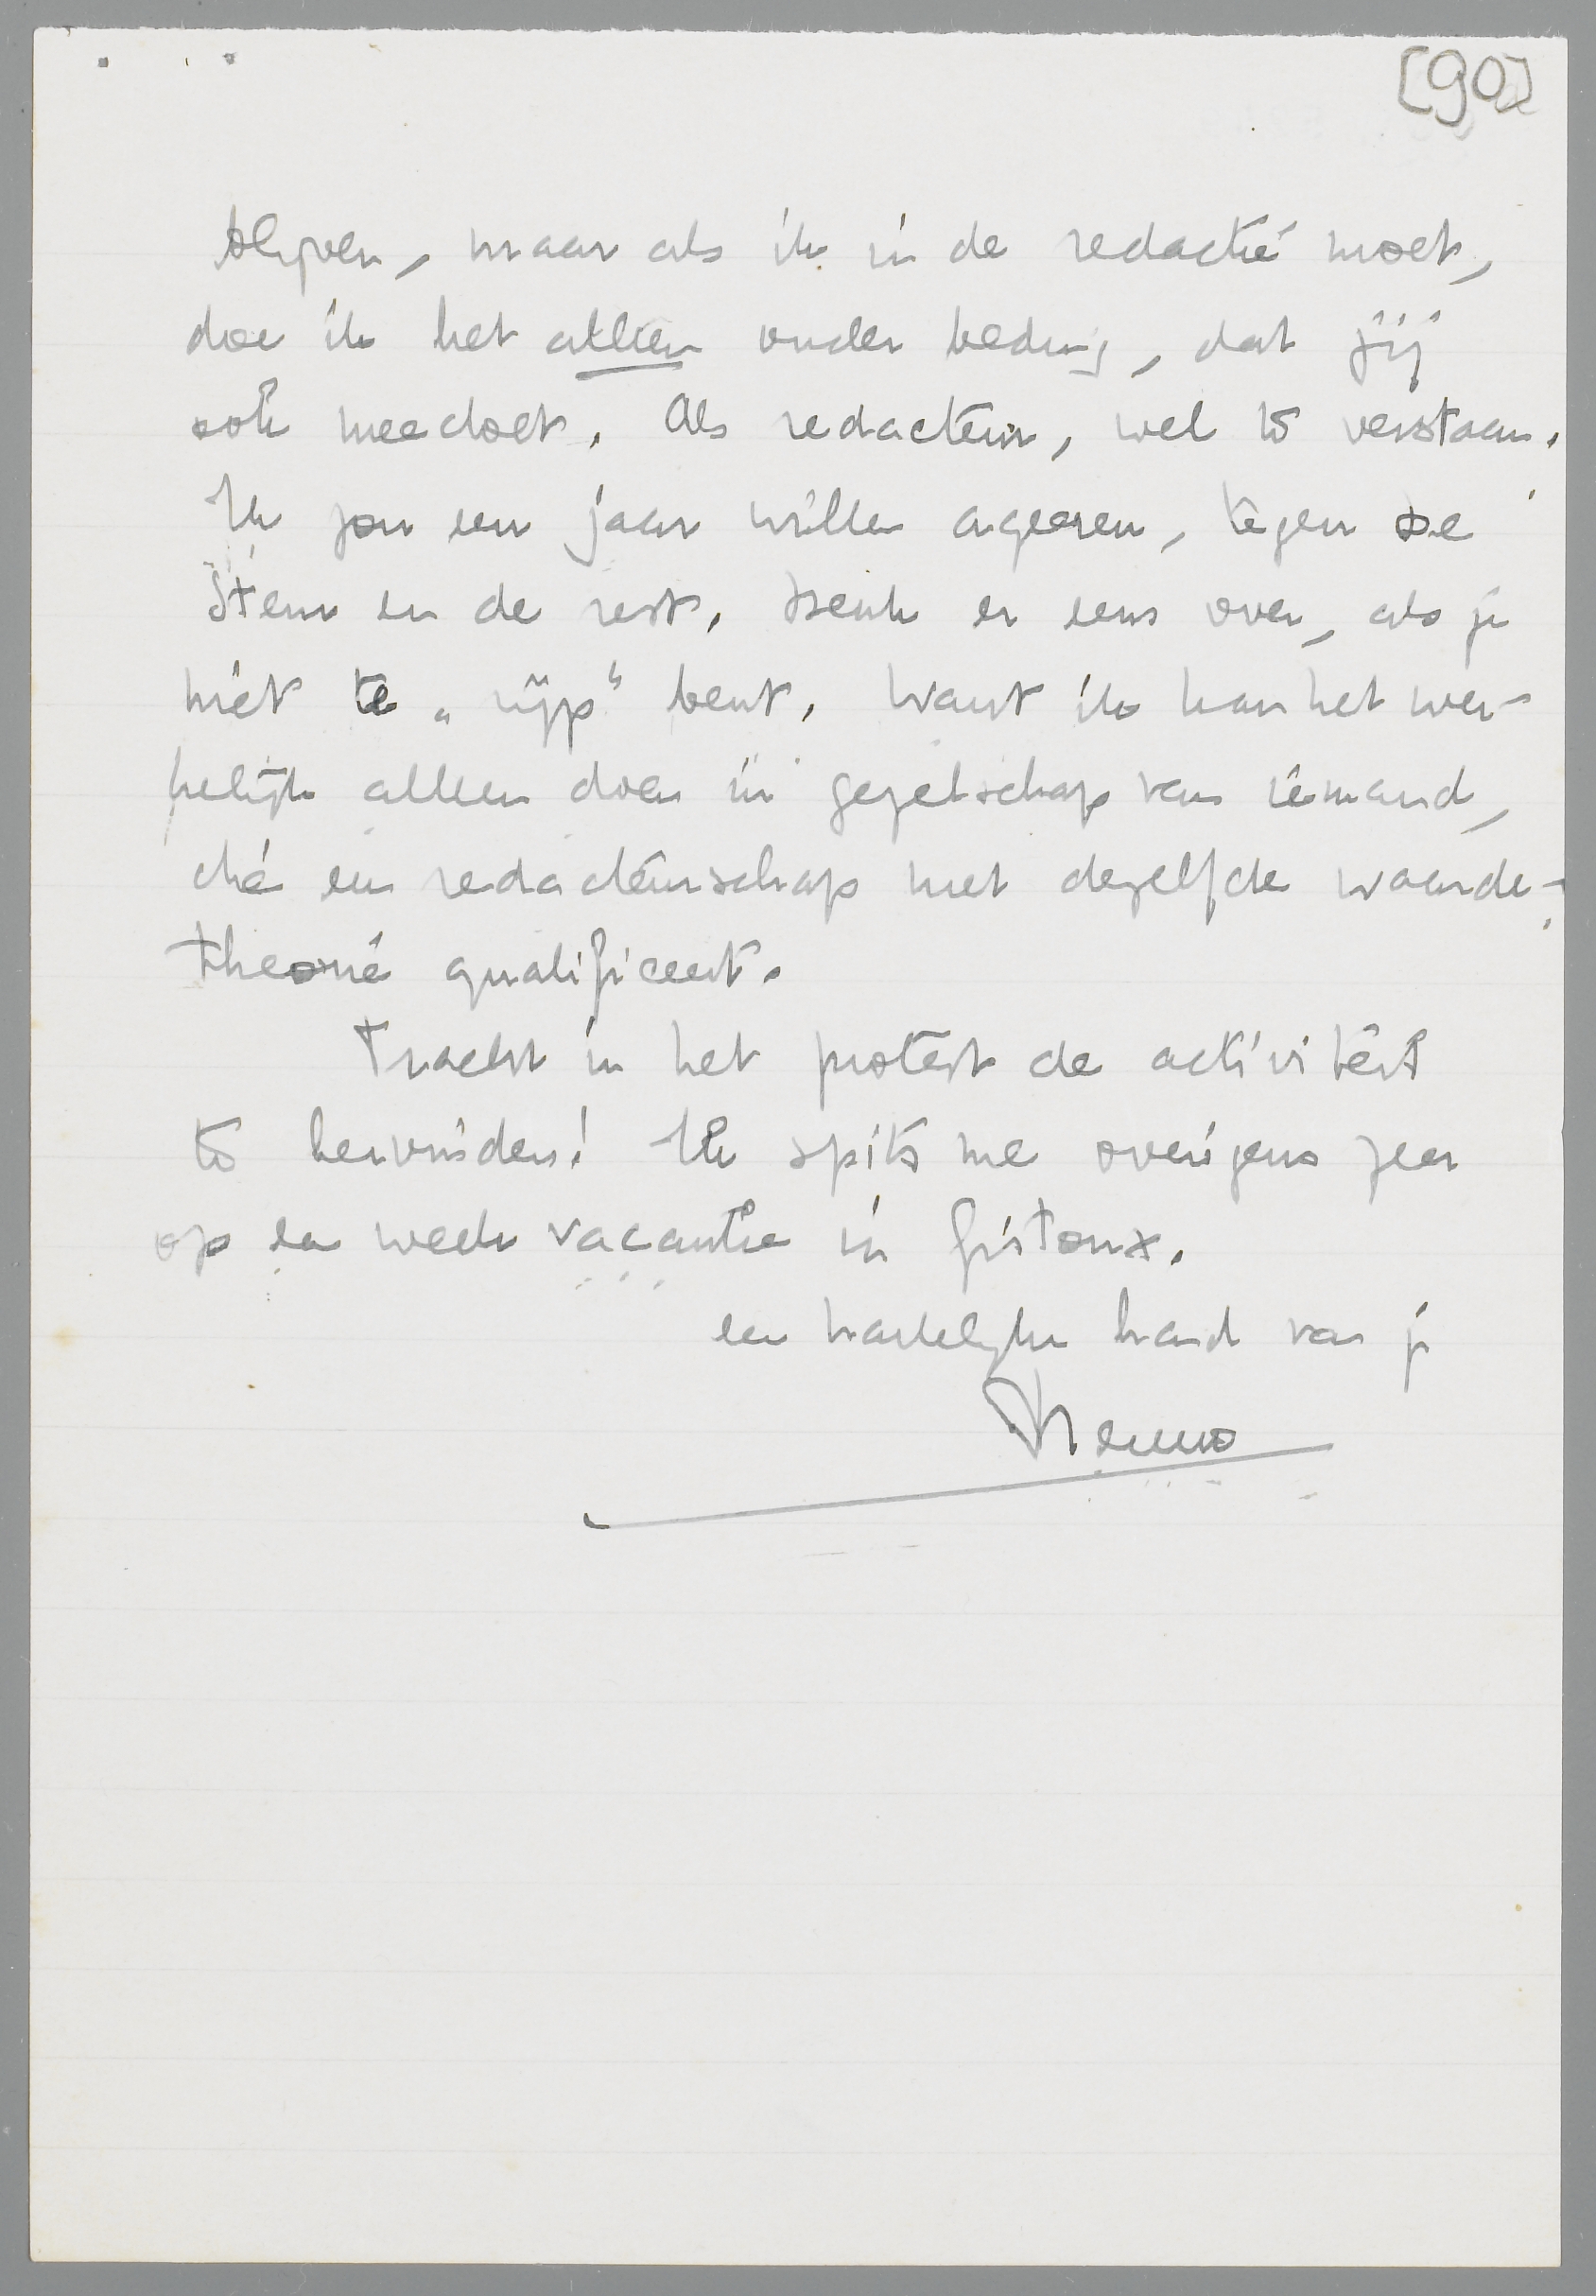 [90]
blijven, maar als ik in de redactie moet,
doe ik het alleen onder beding, dat jij
ook meedoet. Als redacteur, wel te verstaan.
Ik zou een jaar willen ageeren, tegen De
Stem en de rest. Denk er eens over, als je
niet te „rijp" bent. Want ik kan het wer-
kelijk alleen doen in gezelschap van iemand,
die een redacteurschap met dezelfde waarde-
theorie qualificeert.
Tracht in het protest de activiteit
te hervinden! Ik spits me overigens zeer
op een week vacantie in Gistoux.
een hartelijke hand van je
Menno